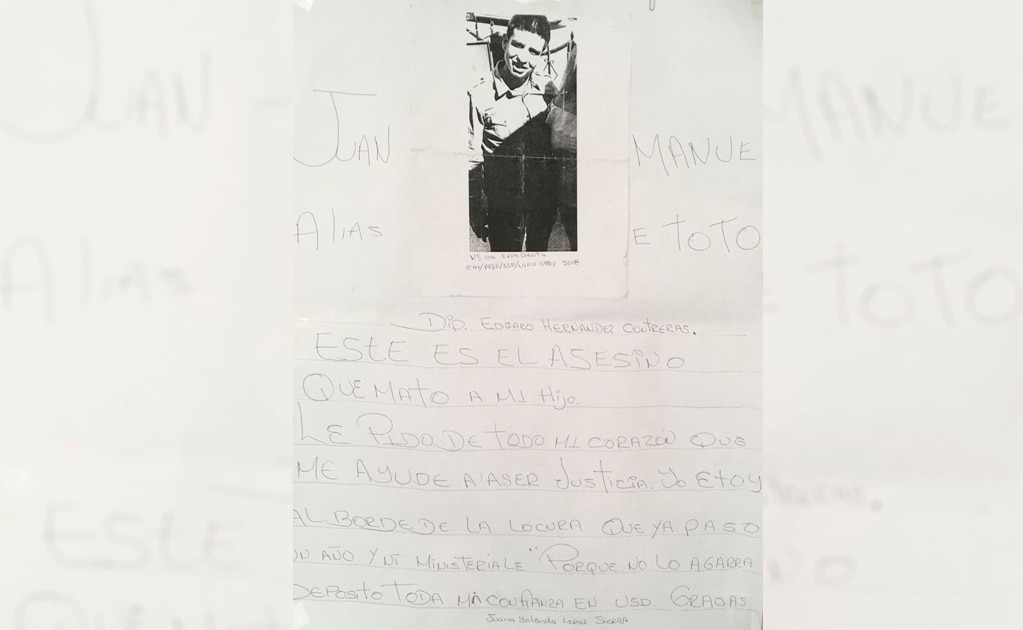 JUAN MANUE
Alias E TOTO
Nº DE EXPEDIENTE
2018
Dip. Edgaro Hernandez Contreras.
ESTE ES EL ASESINO
QUE MATO A MI Hijo.
LE PIDO DE TODO MI CORAZÓN QUE
ME AYUDE A ASER Justicia. Yo EtOY
AL BORDE DE LA LOCURA QUE YA PASO
UN AÑO Y NI MINISTERIALE "PORQUE NO LO AGARRA
DEPOSITO TODA MI CONFIANZA EN USD. GRACIAS
Juana Yolanda Lopez SIERRA